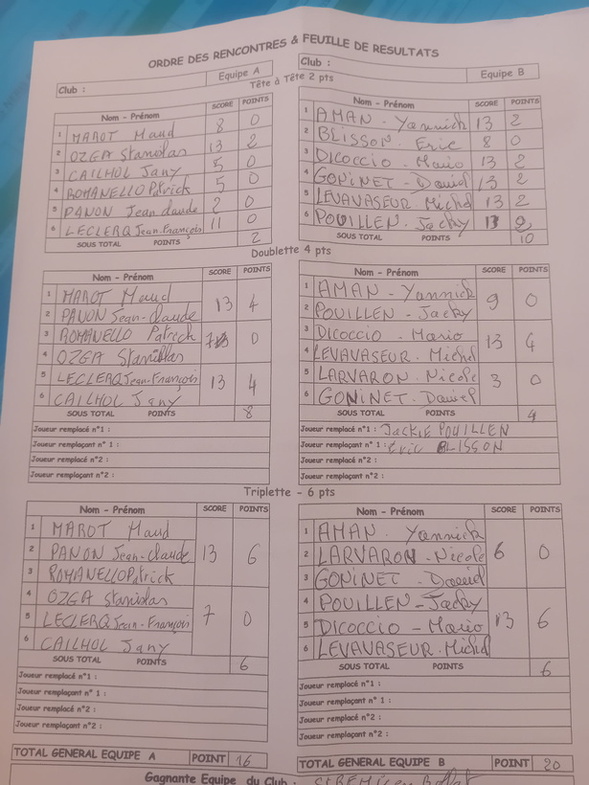 ORDRE DES RENCONTRES & FEUILLE DE RESULTATS
Club : Equipe A
Club : Equipe B
Tête à Tête 2 pts
Nom - Prénom SCORE POINTS
1 MAROT Maud 8 0
2 OZGA Stanislas 13 2
3 CAILHOL Jany 5 0
4 ROMANELLO Patrick 5 0
5 PANON Jean claude 2 0
6 LECLERQ Jean-François 11 0
SOUS TOTAL POINTS 2
Nom - Prénom SCORE POINTS
1 AMAN - Yannick 13 2
2 BLISSON - Eric 8 0
3 DICOCCIO - Mario 13 2
4 GONINET - Daniel 13 2
5 LEVAVASEUR - Michel 13 2
6 POUILLEN - Jacky 13 2
SOUS TOTAL POINTS 10
Doublette 4 pts
Nom - Prénom SCORE POINTS
1 MAROT Maud 13 4
2 PANON Jean-Claude
3 ROMANELLO Patrick 7 0
4 OZGA Stanislas
5 LECLERQ Jean-François 13 4
6 CAILHOL Jany
SOUS TOTAL POINTS 8
Joueur remplacé n°1 :
Joueur remplaçant n° 1 :
Joueur remplacé n°2 :
Joueur remplaçant n°2 :
Nom - Prénom SCORE POINTS
1 AMAN - Yannick 9 0
2 POUILLEN - Jacky
3 DICOCCIO - Mario 13 4
4 LEVAVASEUR - Michel
5 LARVARON - Nicole 3 0
6 GONINET - Daniel
SOUS TOTAL POINTS 4
Joueur remplacé n°1 : JACKIE POUILLEN
Joueur remplaçant n° 1 : Eric BLISSON
Joueur remplacé n°2 :
Joueur remplaçant n°2 :
Triplette - 6 pts
Nom - Prénom SCORE POINTS
1 MAROT Maud
2 PANON Jean-Claude 13 6
3 ROMANELLO Patrick
4 OZGA Stanislas
5 LECLERQ Jean-François 7 0
6 CAILHOL Jany
SOUS TOTAL POINTS 6
Joueur remplacé n°1 :
Joueur remplaçant n° 1 :
Joueur remplacé n°2 :
Joueur remplaçant n°2 :
TOTAL GENERAL EQUIPE A POINT 16
Nom - Prénom SCORE POINTS
1 AMAN - Yannick
2 LARVARON - Nicole 6 0
3 GONINET - Daniel
4 POUILLEN - Jacky
5 DICOCCIO - Mario 13 6
6 LEVAVASEUR - Michel
SOUS TOTAL POINTS 6
Joueur remplacé n°1 :
Joueur remplaçant n° 1 :
Joueur remplacé n°2 :
Joueur remplaçant n°2 :
TOTAL GENERAL EQUIPE B POINT 20
Gagnante Equipe du Club :